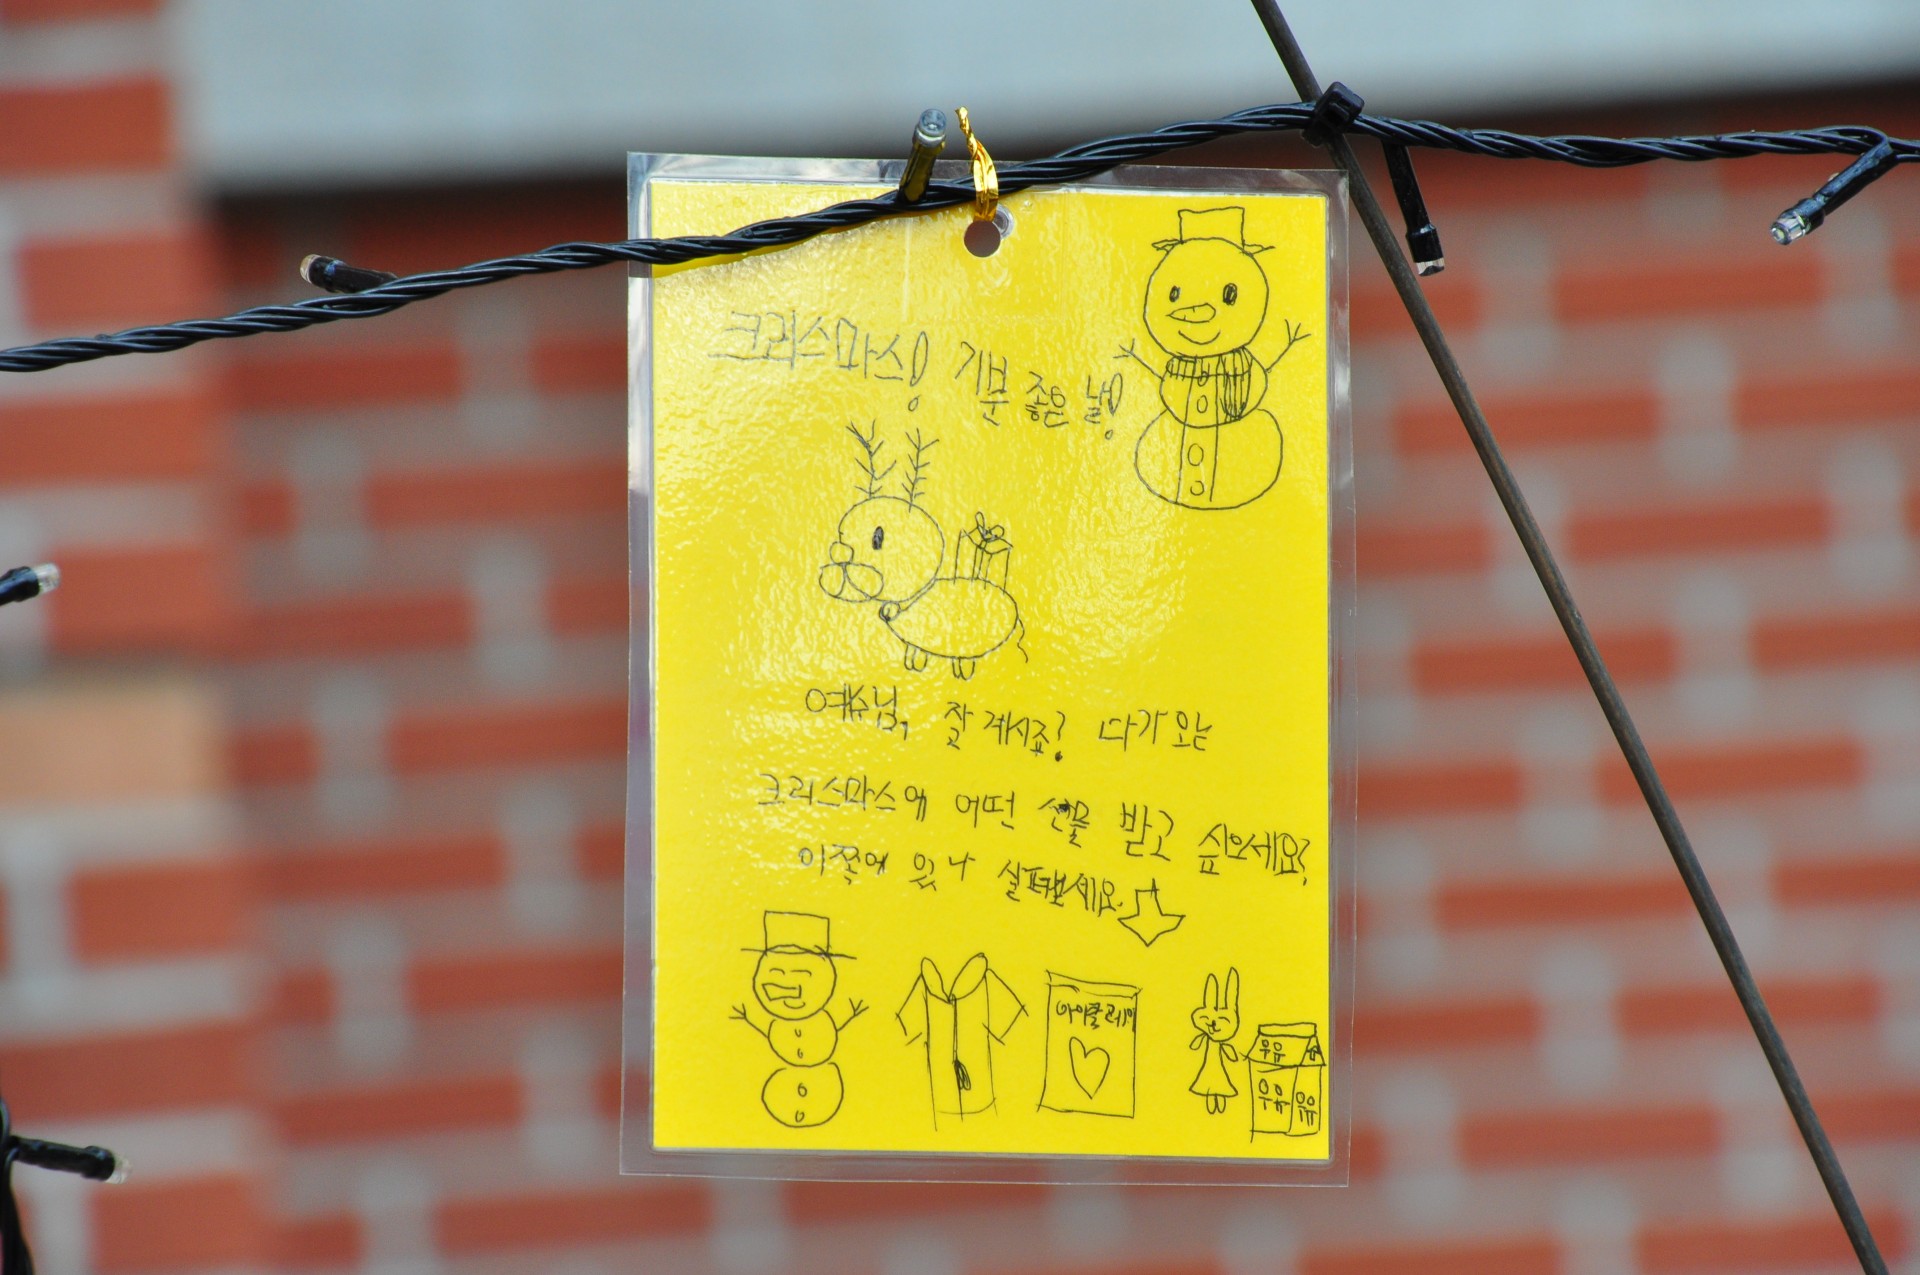 크리스마스! 기분 좋은 날!
예수님, 잘 계시죠? 다가오는
크리스마스에 어떤 선물 받고 싶으세요?
이쪽에 있나 살펴보세요.
아이클레이
우유
우유
우유